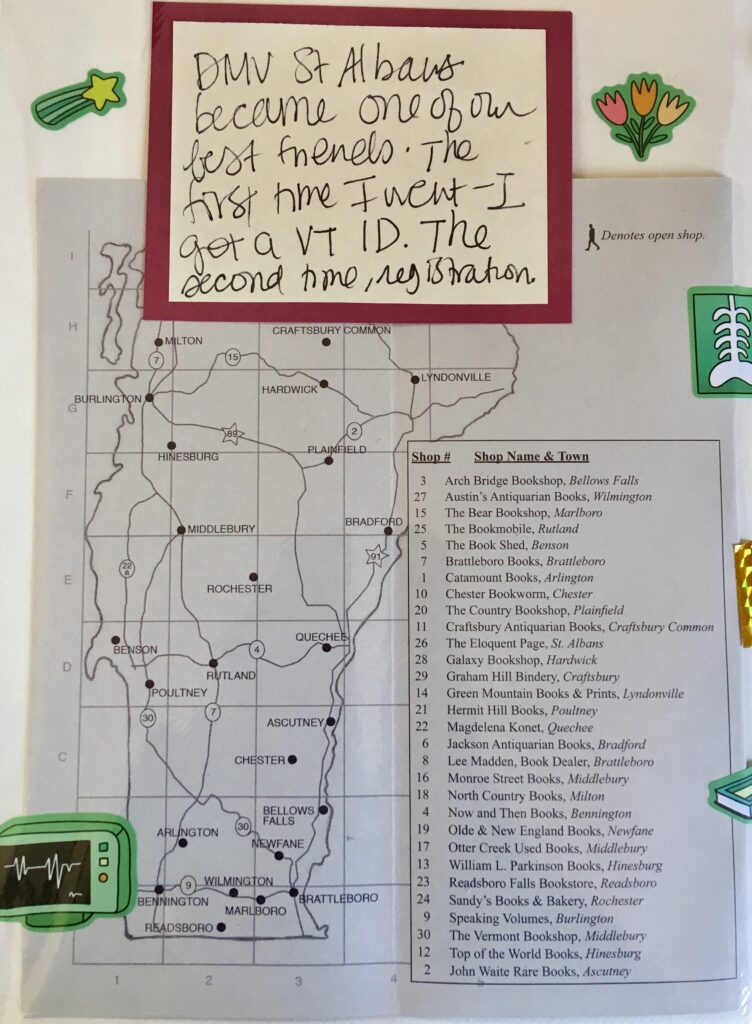 DMV St Albans
became one of our
best friends. The
first time I went - I
got a VT ID. The
second time, registration.
Denotes open shop.
I
H
G
F
E
D
C
A
1
2
3
4
5
CRAFTSBURY COMMON
MILTON
7
15
LYNDONVILLE
HARDWICK
BURLINGTON
2
89
HINESBURG
PLAINFIELD
MIDDLEBURY
BRADFORD
91
22
a
ROCHESTER
BENSON
4
QUECHEE
RUTLAND
POULTNEY
30
7
ASCUTNEY
CHESTER
BELLOWS
FALLS
ARLINGTON
30
NEWFANE
9
WILMINGTON
BENNINGTON
MARLBORO
BRATTLEBORO
READSBORO
Shop # Shop Name & Town
3 Arch Bridge Bookshop, Bellows Falls
27 Austin's Antiquarian Books, Wilmington
15 The Bear Bookshop, Marlboro
25 The Bookmobile, Rutland
5 The Book Shed, Benson
7 Brattleboro Books, Brattleboro
1 Catamount Books, Arlington
10 Chester Bookworm, Chester
20 The Country Bookshop, Plainfield
11 Craftsbury Antiquarian Books, Craftsbury Common
26 The Eloquent Page, St. Albans
28 Galaxy Bookshop, Hardwick
29 Graham Hill Bindery, Craftsbury
14 Green Mountain Books & Prints, Lyndonville
21 Hermit Hill Books, Poultney
22 Magdelena Konet, Quechee
6 Jackson Antiquarian Books, Bradford
8 Lee Madden, Book Dealer, Brattleboro
16 Monroe Street Books, Middlebury
18 North Country Books, Milton
4 Now and Then Books, Bennington
19 Olde & New England Books, Newfane
17 Otter Creek Used Books, Middlebury
13 William L. Parkinson Books, Hinesburg
23 Readsboro Falls Bookstore, Readsboro
24 Sandy's Books & Bakery, Rochester
9 Speaking Volumes, Burlington
30 The Vermont Bookshop, Middlebury
12 Top of the World Books, Hinesburg
2 John Waite Rare Books, Ascutney